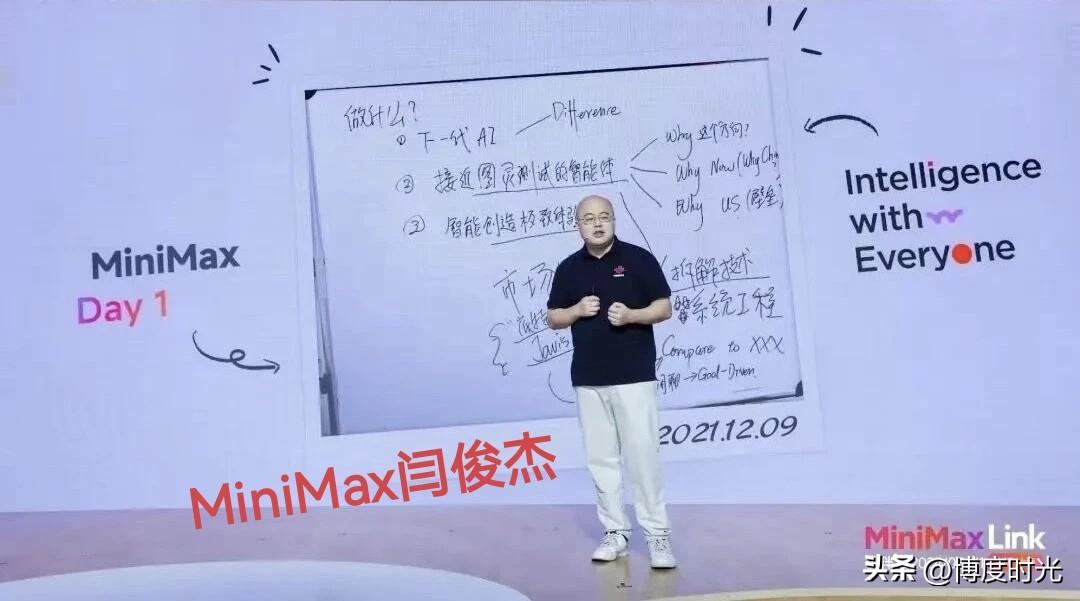 做什么?
① 下一代 AI
Difference
② 接近图灵测试的智能体
Why 这个方向?
Why Now (Why
③ 智能创造极致体
Why US (壁垒)
市场
拆解技术
系统工程
Compare to XXX
→Goal-Driven
2021.12.09
MiniMax
Day 1
Intelligence
with
Everyone
MiniMax闫俊杰
MiniMax Link
头条 @博度时光